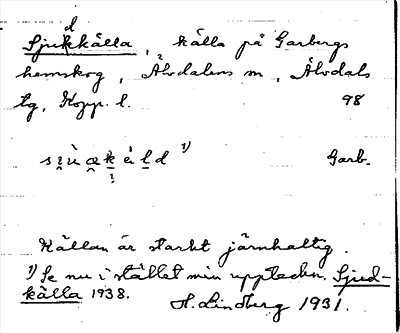 d
Sjukkälla, källa på Garbergs
hemskog, Älvdalens sn, Älvdals
tg, Kopp. l. 98
¹) Garb.
Källan är starkt järnhaltig.
¹) Se nu i stället min uppteckn. Sjud-
källa 1938. H. Lindberg 1931.